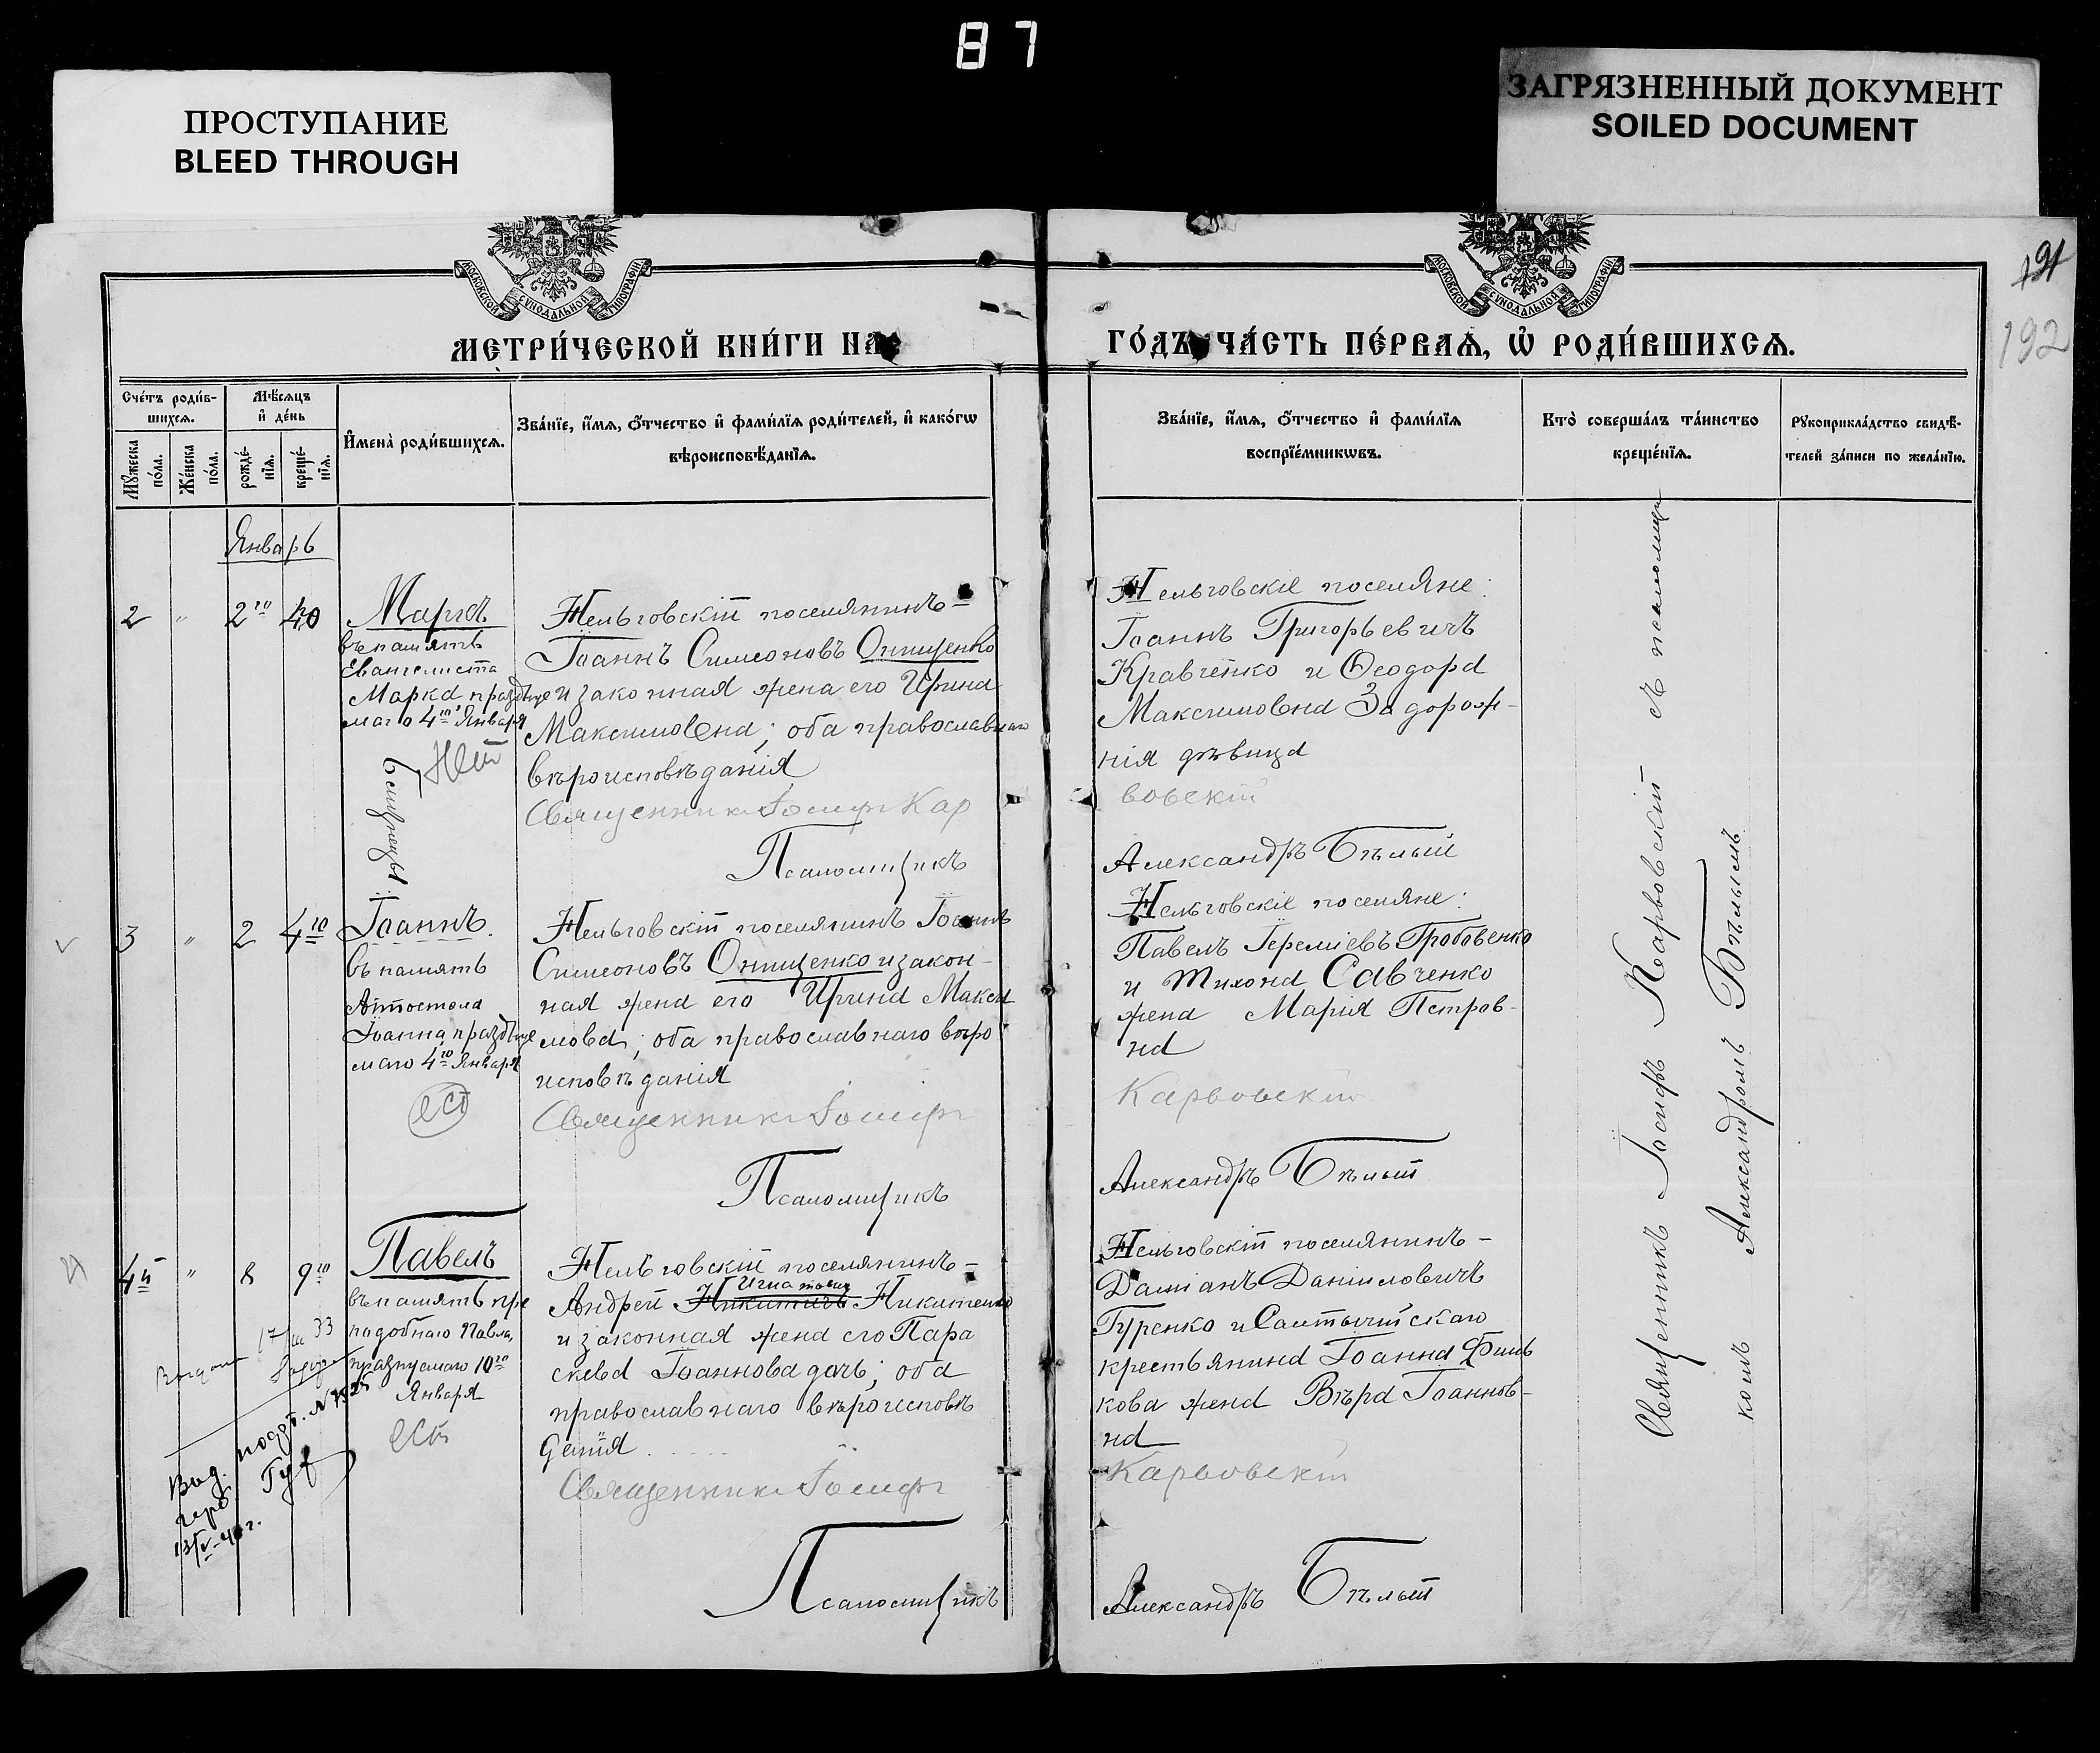 87
ПРОСТУПАНИЕ
BLEED THROUGH
ЗАГРЯЗНЕННЫЙ ДОКУМЕНТ
SOILED DOCUMENT
191
192
МОСКОВСКОЙ СѴНОДАЛЬНОЙ ТИПОГРАФІИ
МОСКОВСКОЙ СѴНОДАЛЬНОЙ ТИПОГРАФІИ
МЕТРИ́ЧЕСКОЙ КНИ́ГИ НА
ГО́ДЪ ЧА́СТЬ ПЕ́РВАѦ, Ѡ҆ РОДИ́ВШИХСѦ.
Сче́тъ роди́в-
шихсѧ.
Мѣ́сѧцъ
и҆ де́нь
Мꙋ́жеска
по́ла.
Же́нска
по́ла.
рожде́-
нїѧ.
креще́-
нїѧ.
И҆мена̀ роди́вшихсѧ.
Зва́нїе, и҆́мѧ, ѻ҆́тчество и҆ фами́лїѧ роди́телей, и҆ како́гѡ
вѣроисповѣ́данїѧ.
Зва́нїе, и҆́мѧ, ѻ҆́тчество и҆ фами́лїѧ
воспрїе́мникѡвъ.
Кто̀ соверша́лъ та́инство
креще́нїѧ.
Рꙋкоприкла́дство свидѣ́-
телей за́писи по жела́нїю.
Январь
2 " 2го 4го
Маркъ
въ память
Евангелиста
Марка, празднуе
маго 4го Января
Близнецы
Нет
Нельговскій поселянинъ –
Іоаннъ Симеоновъ Онищенко
и законная жена его Ирина
Максимовна; оба православнаго
вѣроисповѣданія
Священникъ Іосифъ Кар
Псаломщикъ
Нельговскіе поселяне:
Іоаннъ Григорьевичъ
Кравченко и Ѳеодора
Максимовна Задорож-
ная дѣвица
вовскій
Александръ Бѣлый
3 " 2 4го
Іоаннъ.
въ память
Апостола
Іоанна, празднуе
маго 4го Января
ест
Нельговскій поселянинъ Іоаннъ
Симеоновъ Онищенко и закон-
ная жена его Ирина Макси
мова; оба православнаго вѣро
исповѣданія
Священникъ Іосифъ
Псаломщикъ
Нельговскіе поселяне:
Павелъ Іереміевъ Гробовенко
и Тихона Савченко
жена Марія Петров-
на
Карвовскій
Александръ Бѣлый
4 " 8 9го
Павелъ
въ память пре
подобнаго Павла,
празднуемаго 10го
Января
ест
Выдан
33
Выд.подт. №
13/V-40г.
Нельговскій поселянинъ –
Андрей Никитичъ Игнатович Никитенко
и законная жена его Пара
скева Іоаннова дочь; оба
православнаго вѣроисповѣ
данія
Священникъ Іосифъ
Псаломщикъ
Нельговскій поселянинъ –
Даміанъ Даніиловичъ
Гуренко и Салтычійскаго
крестьянина Іоанна Филь
кова жена Вѣра Іоаннов-
на
Карвовскій
Александръ Бѣлый
Священникъ Іосифъ Карвовскій съ псаломщи
комъ Александромъ Бѣлымъ